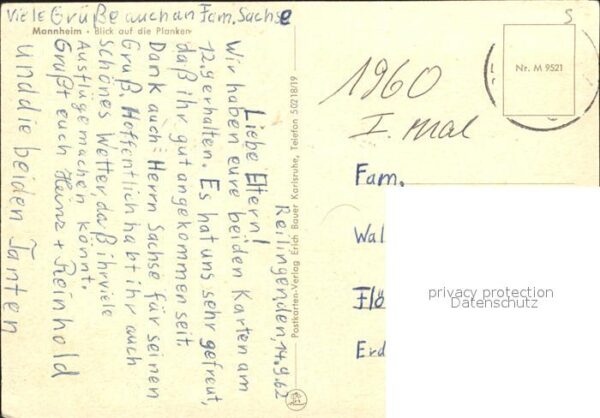 Viele Grüße auch an Fam. Sachse
Mannheim • Blick auf die Planken
Reilingenden, 14.9.62
Liebe Eltern!
Wir haben eure beiden Karten am
12.9 erhalten. Es hat uns sehr gefreut,
daß ihr gut angekommen seit.
Dank auch Herrn Sachse für seinen
Gruß. Hoffentlich habt ihr auch
schönes Wetter, daß ihr viele
Ausflüge machen könnt.
Grüßt euch Heinz + Reinhold
und die beiden Tanten
Postkarten-Verlag Erich Bauer Karlsruhe, Telefon 50218/19
1960
I. mal
Nr. M 9521
S
Fam.
Wal
Flö
Erd
privacy protection
Datenschutz